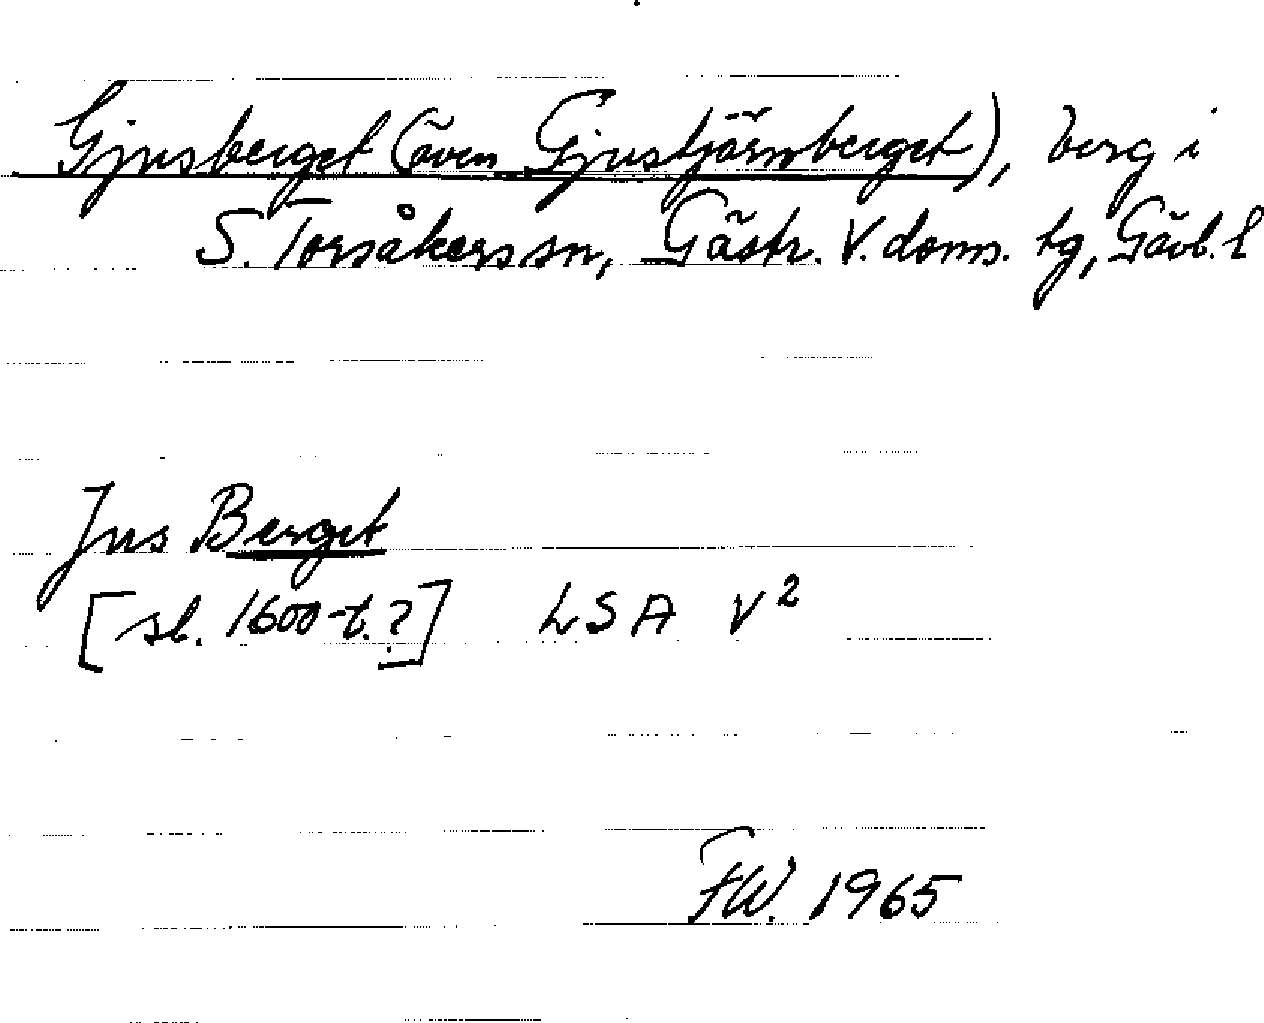 Gjusberget (även Gjustjärnberget), berg i
S. Torsåkers sn, Gästr. V. doms. tg, Gävb. l
Jus Berget
[sl. 1600-t.?] LSA V²
FW. 1965